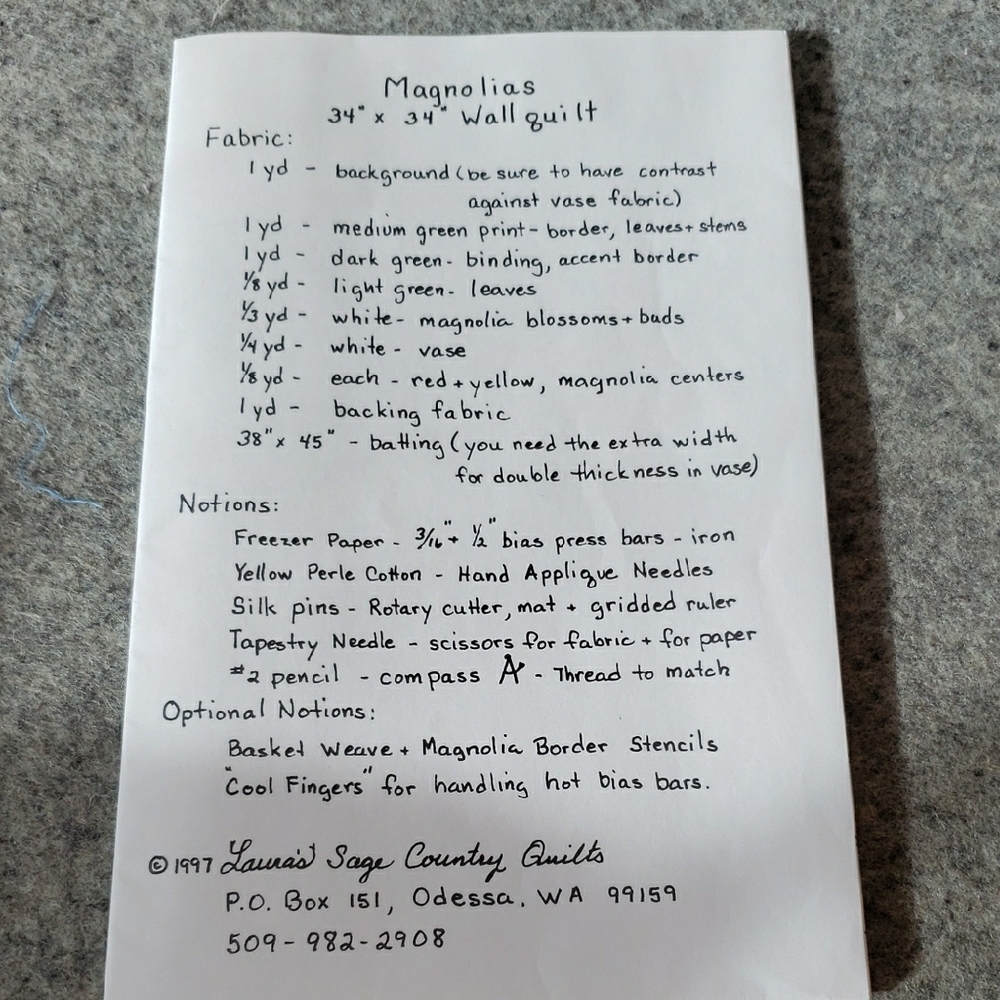 Magnolias
34" x 34" Wall quilt
Fabric:
1 yd - background (be sure to have contrast
against vase fabric)
1 yd - medium green print - border, leaves + stems
1 yd - dark green - binding, accent border
1/8 yd - light green - leaves
1/3 yd - white - magnolia blossoms + buds
1/4 yd - white - vase
1/8 yd - each - red + yellow, magnolia centers
1 yd - backing fabric
38" x 45" - batting (you need the extra width
for double thickness in vase)
Notions:
Freezer Paper - 3/16" + 1/2" bias press bars - iron
Yellow Perle Cotton - Hand Applique Needles
Silk pins - Rotary cutter, mat + gridded ruler
Tapestry Needle - scissors for fabric + for paper
#2 pencil - compass - Thread to match
Optional Notions:
Basket Weave + Magnolia Border Stencils
"Cool Fingers" for handling hot bias bars.
© 1997 Laura's Sage Country Quilts
P.O. Box 151, Odessa, WA 99159
509-982-2908